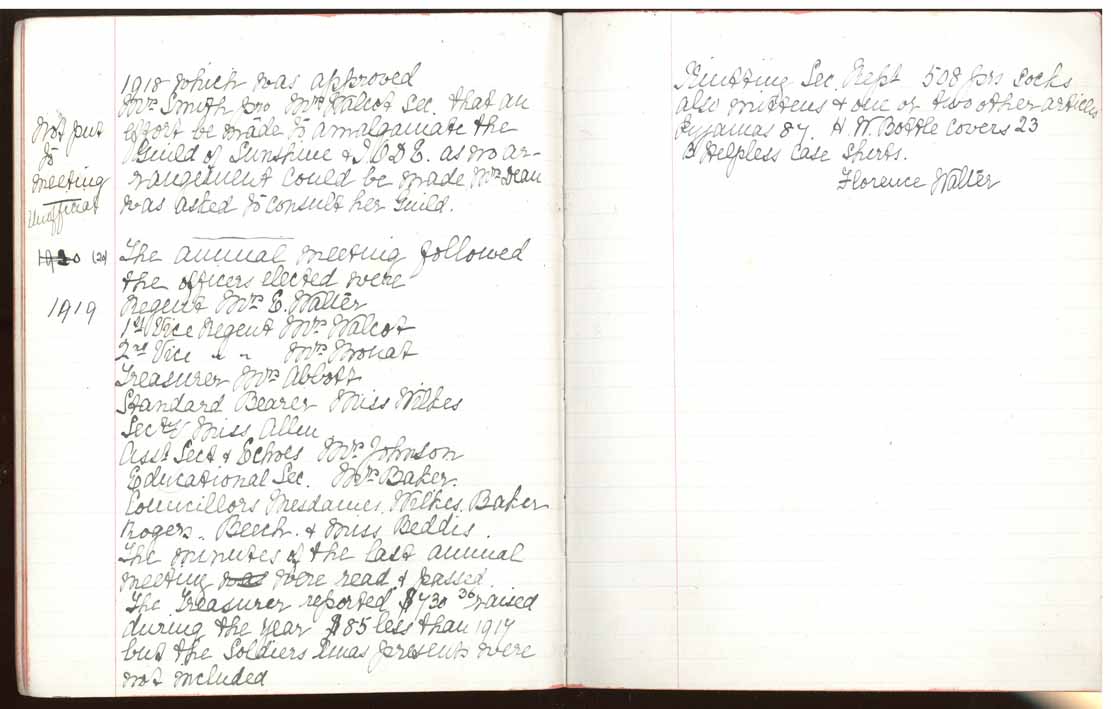 1918 which was approved
Mrs Smith pro Mrs Walcot Sec. that an
effort be made to amalgamate the
Guild of Sunshine & I.O.D.E. as no ar-
rangement could be made Mrs Dean
was asked to consult her Guild.
Not put
to
meeting
Unofficial
The annual meeting followed
the officers elected were
1920 (20)
1919
Regent Mrs E. Walter
1st Vice Regent Mrs Walcot
2nd Vice " " Mrs Mouat
Treasurer Mrs Abbott
Standard Bearer Miss Wilkes
Secty Miss Allen
Asst Sect & Echoes Mrs Johnson
Educational Sec. Mrs Baker
Councillors Mesdames. Wilkes. Baker
Rogers. Beech. & Miss Beddis.
The minutes of the last annual
meeting was were read & passed.
The Treasurer reported $730 36 raised
during the year $85 less than 1917
but the Soldiers Xmas presents were
not included
Knitting Sec. Rept 508 prs socks
also mittens & one or two other articles
Pyjamas 87. H.W. Bottle covers 23
3 Helpless Case Shirts.
Florence Walter